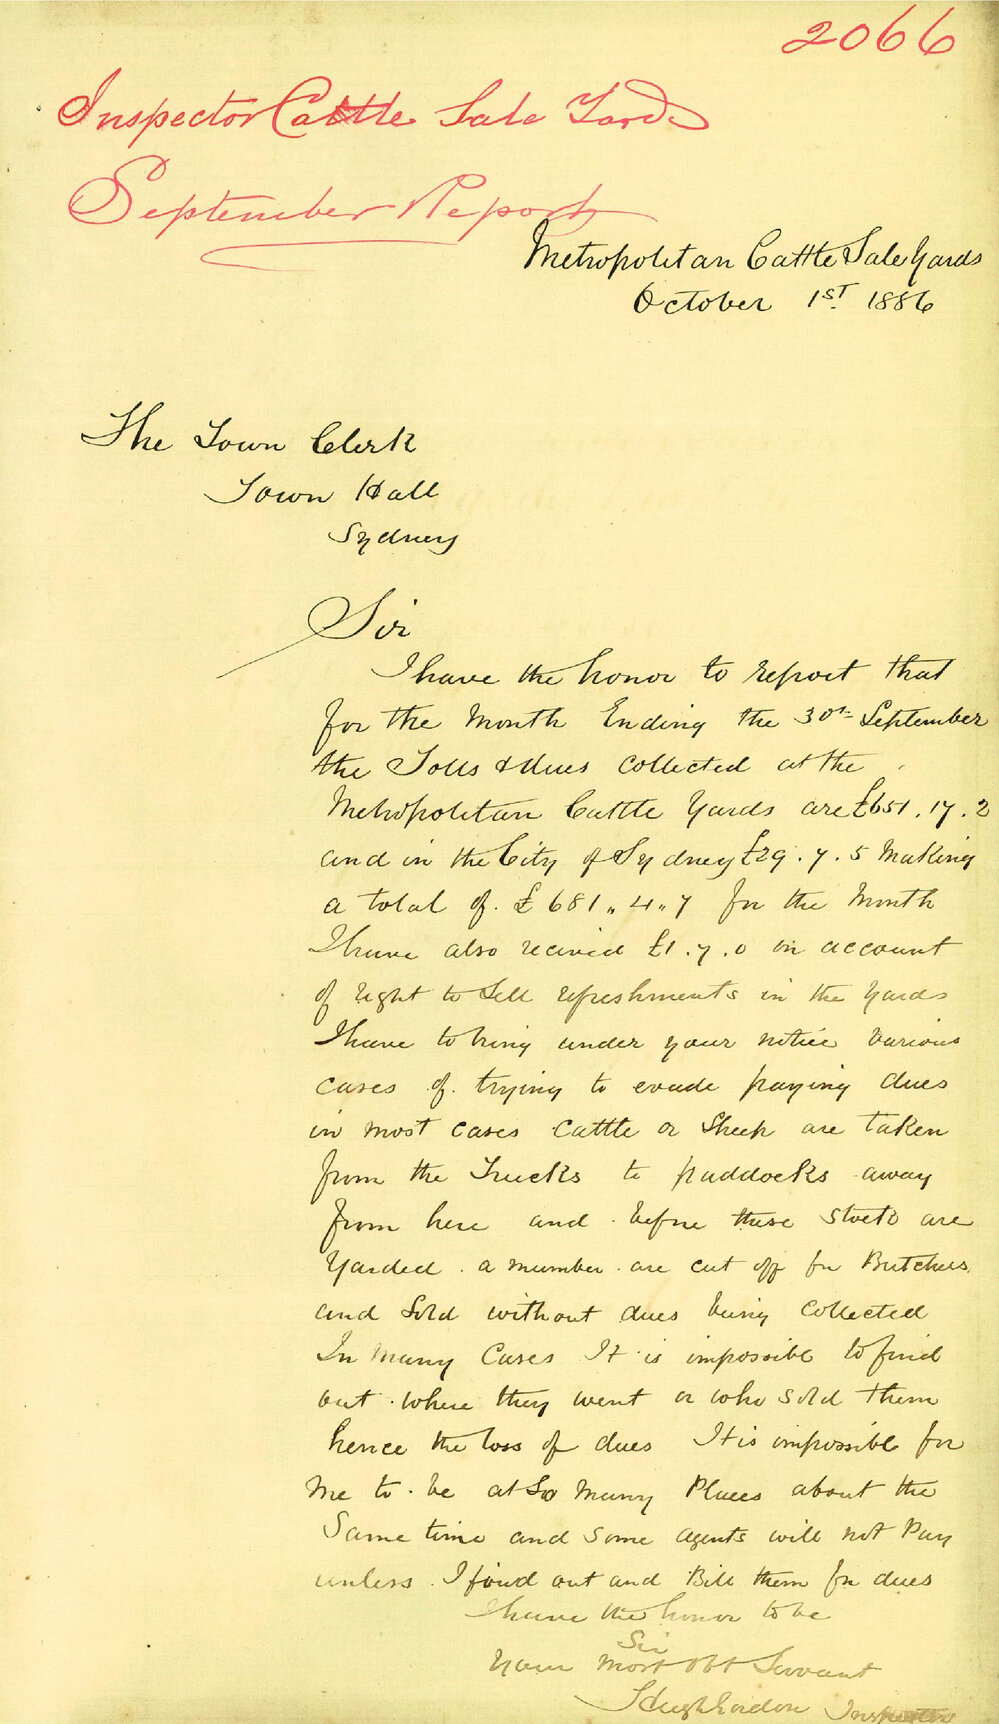 2066
Inspector Cattle Sale Yards
September Report
Metropolitan Cattle Sale Yards
October 1st 1886
The Town Clerk
Town Hall
Sydney
Sir
I have the honor to report that
for the Month Ending the 30th September
the Tolls & dues collected at the
Metropolitan Cattle Yards are £651.17.2
and in the City of Sydney £29.7.5 Making
a total of £681„4„7 for the Month
I have also recived £1.7.0 on account
of right to Sell refreshments in the Yards
I have to bring under your notice various
cases of trying to evade paying dues
in most cases cattle or Sheep are taken
from the Trucks to paddocks away
from here and before these stock are
Yarded a number are cut off for Butchers
and Sold without dues being collected
In many Cases It is impossible to find
out where they went or who sold them
hence the loss of dues It is impossible for
me to be at So many Places about the
Same time and some agents will not Pay
unless I find out and Bill them for dues
I have the honor to be
Sir
Your Most Obt Servant
Hugh Gordon Inspector